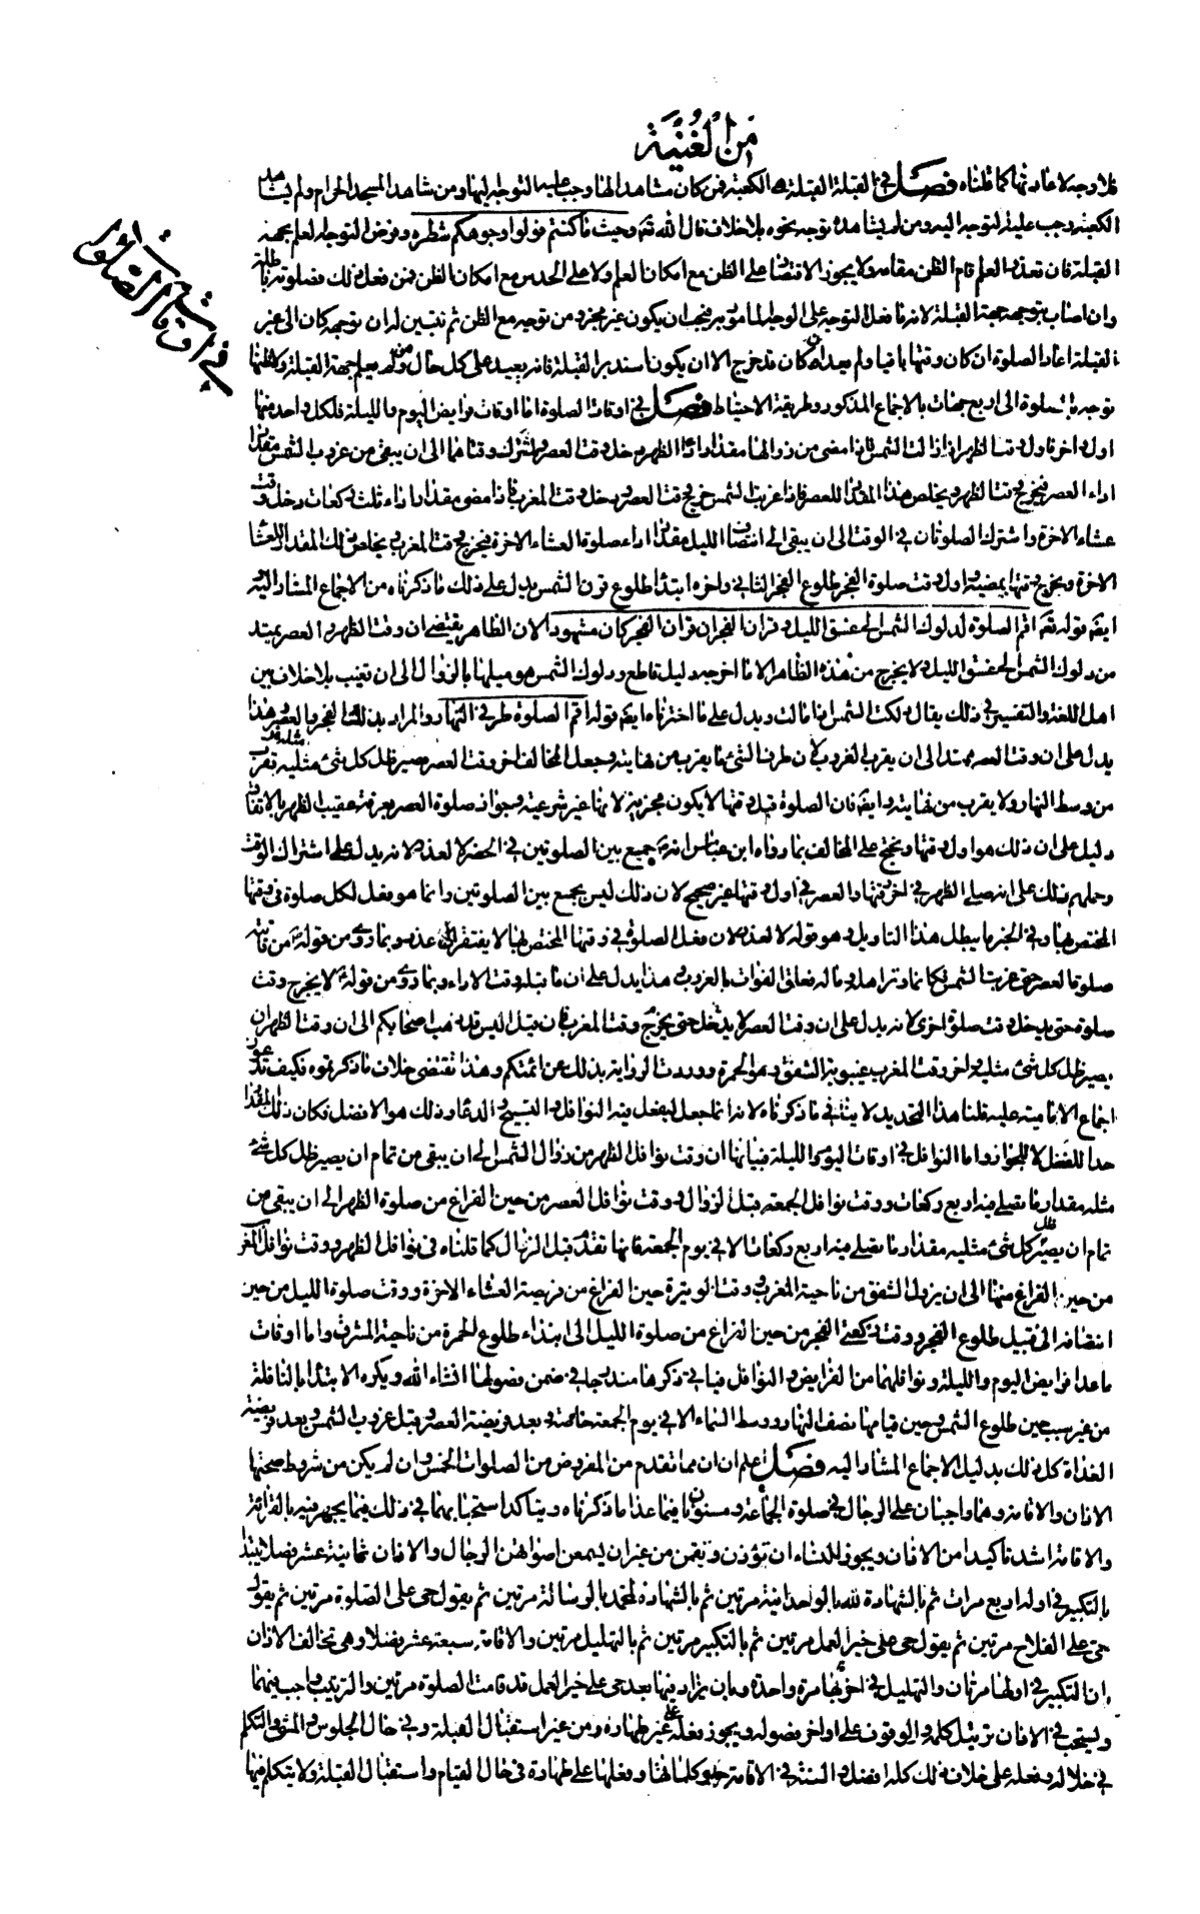 من الغنية
فلا وجه لاعادتها كما قلناه فصل في القبلة القبلة هى الكعبة فمن كان مشاهدا لها وجب عليه التوجه اليها ومن شاهد المسجد الحرام ولم يشاهد
الكعبة وجب عليه التوجه اليه ومن لم يشاهده توجه نحوه بلا خلاف قال الله تع وحيث ما كنتم فولوا وجوهكم شطره وفرض التوجه العلم بجهة
القبلة فان تعذر العلم قام الظن مقامه ولا يجوز الاقتصار على الظن مع امكان العلم ولا على الحدس مع امكان الظن فمن فعل ذلك فصلوته باطلة
وان اصاب بتوجهه جهة القبلة لانه ما فعل التوجه على الوجه المامور به فيجب ان يكون غير مجز ومن توجه مع الظن ثم تبين له ان توجهه كان الى غير
القبلة اعاد الصلوة ان كان وقتها باقيا ولم يعد ان كان قد خرج الا ان يكون استدبر القبلة فانه يعيد على كل حال ومن لم يعلم جهة القبلة ولا ظنها
توجه بالصلوة الى اربع جهات بالاجماع المذكور وطريقة الاحتياط فصل في اوقات الصلوة اما اوقات فرايض اليوم والليلة فلكل واحدة منها
اول واخر فاول وقت الظهر اذا زالت الشمس فاذا مضى من زوالها مقدار اداء الظهر دخل وقت العصر واشترك وقتاهما الى ان يبقى من غروب الشمس مقدار
اداء العصر فيخرج وقت الظهر ويخلص هذا المقدار للعصر فاذا غربت الشمس خرج وقت العصر ودخل وقت المغرب فاذا مضى مقدار اداء ثلث ركعات دخل وقت
عشاء الاخرة واشترك الصلوتان في الوقت الى ان يبقى الى انتصاف الليل مقدار اداء صلوة العشاء الاخرة فيخرج وقت المغرب ويخلص ذلك المقدار للعشاء
الاخرة ويخرج وقتها بمضيه واول وقت صلوة الفجر طلوع الفجر الثاني واخره ابتداء طلوع قرن الشمس يدل على ذلك ما ذكرناه من الاجماع المشار اليه
ايضه قوله تع اقم الصلوة لدلوك الشمس الى غسق الليل وقران الفجر ان قران الفجر كان مشهودا لان الظاهر يقتضى ان وقت الظهر والعصر يمتد
من دلوك الشمس الى غسق الليل ولا يخرج من هذه الظاهر الا ما اخرجه دليل قاطع ودلوك الشمس هو ميلها بالزوال الى ان تغيب بلا خلاف بين
اهل اللغة والتفسير في ذلك يقال دلكت الشمس اذا مالت ويدل على ما اخترناه ايضه قوله اقم الصلوة طرفي النهار والمراد بذلك الفجر والعصر وهذا
يدل على ان وقت العصر ممتد الى ان يقرب الغروب لان طرف الشئ ما يقرب من نهايته وجعل المخالف اخر وقت العصر مصير ظل كل شئ مثليه يقرب
من وسط النهار ولا يقرب من نهايته وايضه فان الصلوة قبل وقتها لا يكون مجزية لانها غير شرعية وجواز صلوة العصر بعرفة عقيب الظهر بالاتفاق
دليل على ان ذلك هو اول وقتها ونحتج على المخالف بما رواه ابن عباس انه ص جمع بين الصلوتين في الحضر لا لعذر لانه يدل على اشتراك الوقت
وحملهم ذلك على انه صلى الظهر في اخر وقتها والعصر في اول وقتها غير صحيح لان ذلك ليس بجمع بين الصلوتين وانما هو فعل لكل صلوة في وقتها
المختص بها وفي الخبر ما يبطل هذا التاويل وهو قوله لا لعذر لان فعل الصلوة في وقتها المختص بها لا يفتقر الى عذر وبما روى من قوله من فاتته
صلوة العصر حتى غربت الشمس فكانما وتر اهله وماله فعلق الفوات بالغروب وهذا يدل على ان ما قبله وقت الاداء وبما روى من قوله لا يخرج وقت
صلوة حتى يدخل وقت صلوة اخرى لانه يدل على ان وقت العصر لا يدخل حتى يخرج وقت المغرب فان قيل اليس قد ذهب اصحابكم الى ان وقت الظهر ان
يصير ظل كل شئ مثليه واخر وقت المغرب غيبوبة الشفق وهو الحمرة ووردت الرواية بذلك عن ائمتكم وهذا تقتضى خلاف ما ذكرتموه فكيف تدعون
اجماع الامامية عليه قلنا هذا التحديد لا ينافى ما ذكرناه لانه انما جعل ليفعل فيه النوافل والتسبيح والدعاء وذلك هو الافضل فكان ذلك المقدار
حدا للفضل لا للجواز واما النوافل في اوقات اليوم والليلة فبيانها ان وقت نوافل الظهر من زوال الشمس الى ان يبقى من تمام ان يصير ظل كل شئ
مثله مقدار ما يصلى فيه اربع ركعات ووقت نوافل الجمعة قبل الزوال ووقت نوافل العصر من حين الفراغ من صلوة الظهر الى ان يبقى من
تمام ان يصير ظل كل شئ مثليه مقدار ما يصلى فيه اربع ركعات الا في يوم الجمعة فانها تقدم قبل الزوال كما قلناه في نوافل الظهر ووقت نوافل المغرب
من حين الفراغ منها الى ان يزول الشفق من ناحية المغرب ووقت الوتيرة حين الفراغ من فريضة العشاء الاخرة ووقت صلوة الليل من حين
انتصافه الى قبيل طلوع الفجر ووقت ركعتى الفجر من حين الفراغ من صلوة الليل الى ابتداء طلوع الحمرة من ناحية المشرق واما اوقات
ما عدا فرايض اليوم والليلة ونوافلهما من الفرايض والنوافل فياتى ذكرها مندرجا في ضمن فصولها انشاء الله ويكره الابتداء بالنافلة
من غير سبب حين طلوع الشمس وحين قيامها نصف النهار ووسط السماء الا في يوم الجمعة خاصة وبعد فريضة العصر وقبل غروب الشمس وبعد فريضة
الغداة كل ذلك بدليل الاجماع المشار اليه فصل اعلم ان مما تقدم من المفروض من الصلوات الخمس وان لم يكن من شروط صحتها
الاذان والاقامة وهما واجبان على الرجال في صلوة الجماعة ومسنونان فيما عدا ما ذكرناه ويتاكد استحبابهما في ذلك فيما يجهر فيه بالقراءة
والاقامة اشد تاكيدا من الاذان ويجوز للنساء ان تؤذن وتقمن من غير ان يسمعن اصواتهن الرجال والاذان ثمانية عشر فصلا يبتدا
بالتكبير في اوله اربع مرات ثم بالشهادة لله بالوحدانية مرتين ثم بالشهادة لمحمد بالرسالة مرتين ثم يقول حى على الصلوة مرتين ثم يقول
حى على الفلاح مرتين ثم يقول حى على خير العمل مرتين ثم بالتكبير مرتين ثم بالتهليل مرتين والاقامة سبعة عشر فصلا وهى تخالف الاذان
بان التكبير في اولها مرتان والتهليل في اخرها مرة واحدة وبان يزاد فيها بعد حى على خير العمل قد قامت الصلوة مرتين والترتيب واجب فيهما
ويستحب في الاذان ترتيل كلمه والوقوف على اواخر فصوله ويجوز فعله على غير طهارة ومن غير استقبال القبلة وفي حال الجلوس والمشى والتكلم
في خلاله وفعله على خلاف ذلك كله افضل والسنة في الاقامة حدر كلماتها وفعلها على طهارة في حال القيام واستقبال القبلة ولا يتكلم فيها
شرح
في اوقات الصلوة